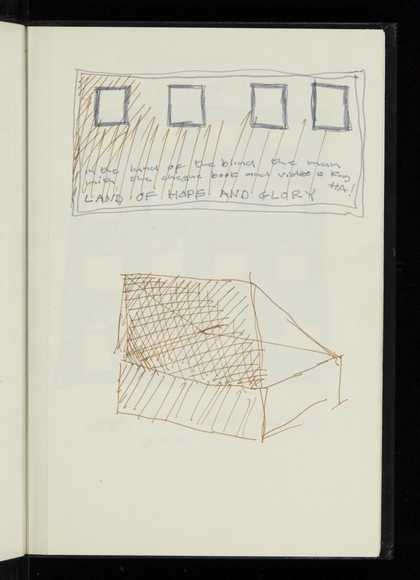 in the land of the blind the man
with the cheque book and video is King
HA!
LAND OF HOPE AND GLORY